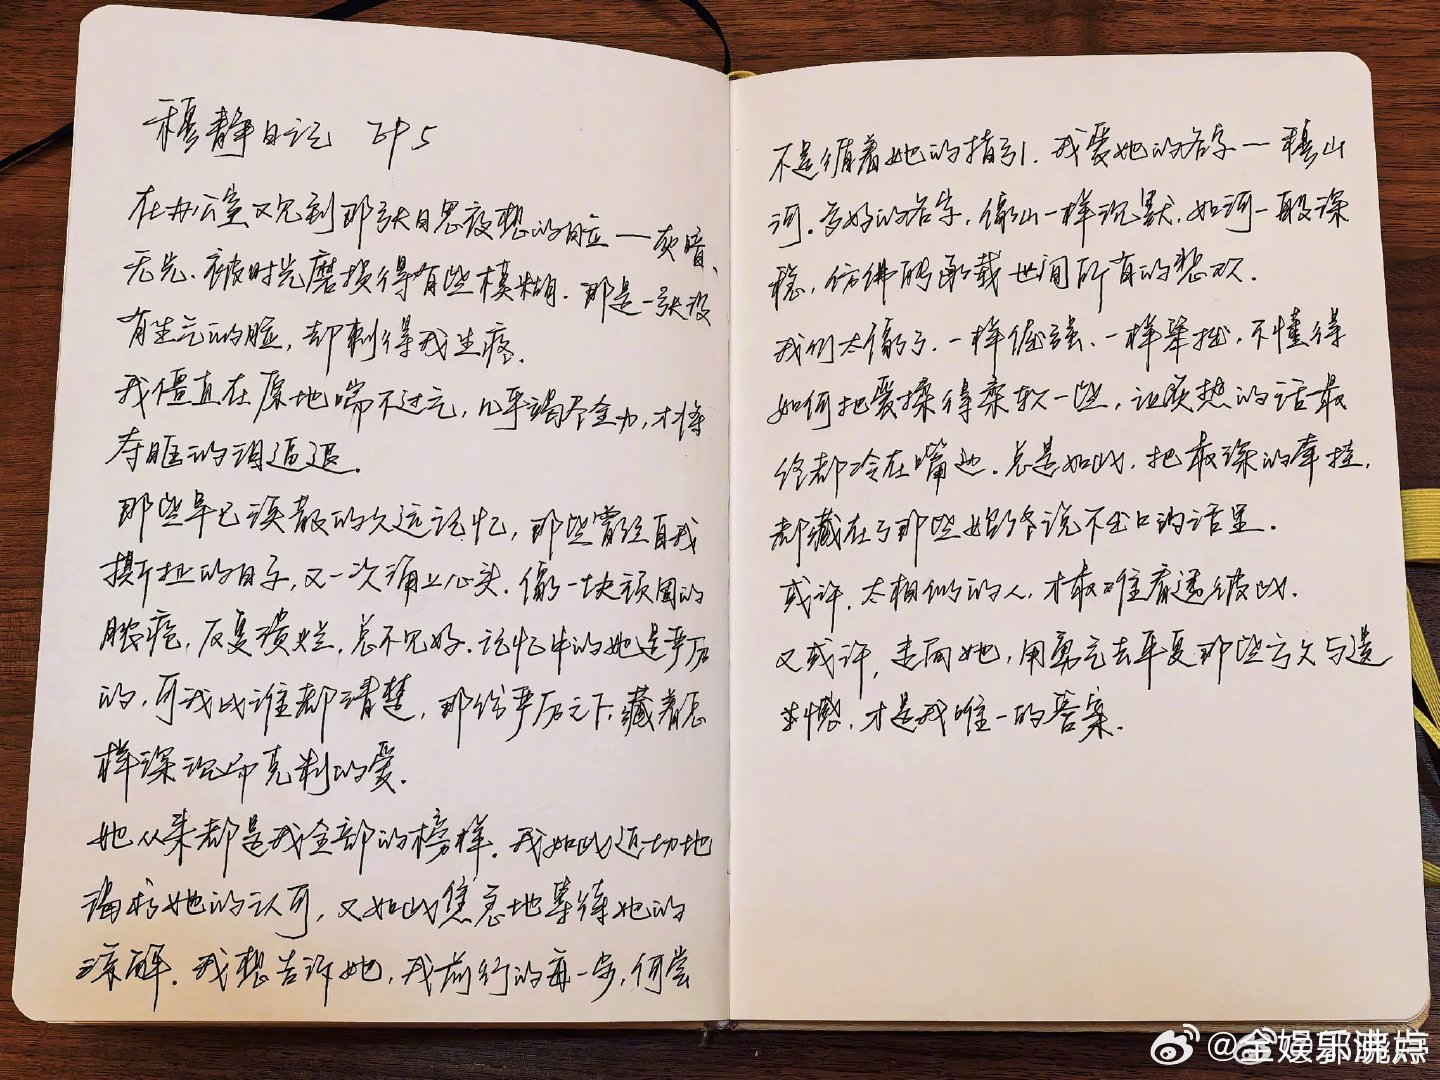 穆静日记 EP5
在办公室又见到那张日思夜想的脸——灰暗、
无光、被时光磨损得有些模糊.那是一张没
有生气的脸,却刺得我生疼.
我僵直在原地喘不过气,几乎竭尽全力,才将
夺眶的泪逼退.
那些早已溃散的久远记忆,那些曾经自我
撕扯的日子,又一次涌上心头.像一块顽固的
脓疮,反复溃烂,总不见好.记忆中的她是严厉
的,可我比谁都清楚,那份严厉之下,藏着怎
样深沉而克制的爱.
她从来都是我全部的榜样.我如此迫切地
渴求她的认可,又如此焦急地等待她的
谅解.我想告诉她,我前行的每一步,何尝
不是循着她的指引.我爱她的名字——穆山
河.多好的名字,像山一样沉默,如河一般深
稳,仿佛能承载世间所有的悲欢.
我们太像了.一样倔强、一样笨拙,不懂得
如何把爱揉得柔软一些,让炙热的话最
终都冷在嘴边.总是如此,把最深的牵挂,
都藏在了那些始终说不出口的话里.
或许,太相似的人,才最难看透彼此.
又或许,走向她,用勇气去平复那些亏欠与遗
憾,才是我唯一的答案.
@金娱乐沸点